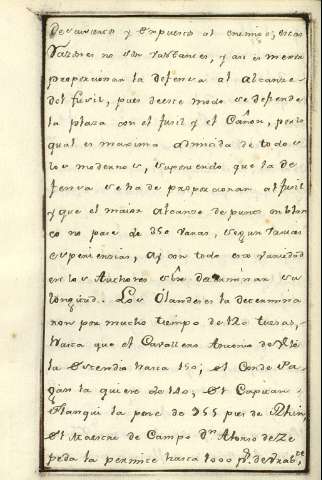 descubierto y expuesto al enemigo, estas
razones no son bastantes, y asi es menes
proporcionar la defensa al alcanze
del fusil, pues deese modo se defiende
la plaza con el fusil y el Cañon, por lo
qual es maxima admitida de todos
los modernos, suponiendo que la de
fensa se ha de proporcionar al fusil
y que el maior alcanze de punto en blan
co no pase de 350 varas, segun varias
experiencias, ay con todo eso variedad
en los Authores sobre determinar su
longitud. Los Olandeses la determina
ron por mucho tiempo de 120 tuesas,
hasta que el Cavallero Antonio de Ville
la extendio hasta 150, el Conde Pa
gan la quiere de 140, el Capitan
la pone de 755 pies de Rhin,
el Maestre de Campo Dn Alonso de Ze
peda la permite hasta 1000 ps. de Brabte